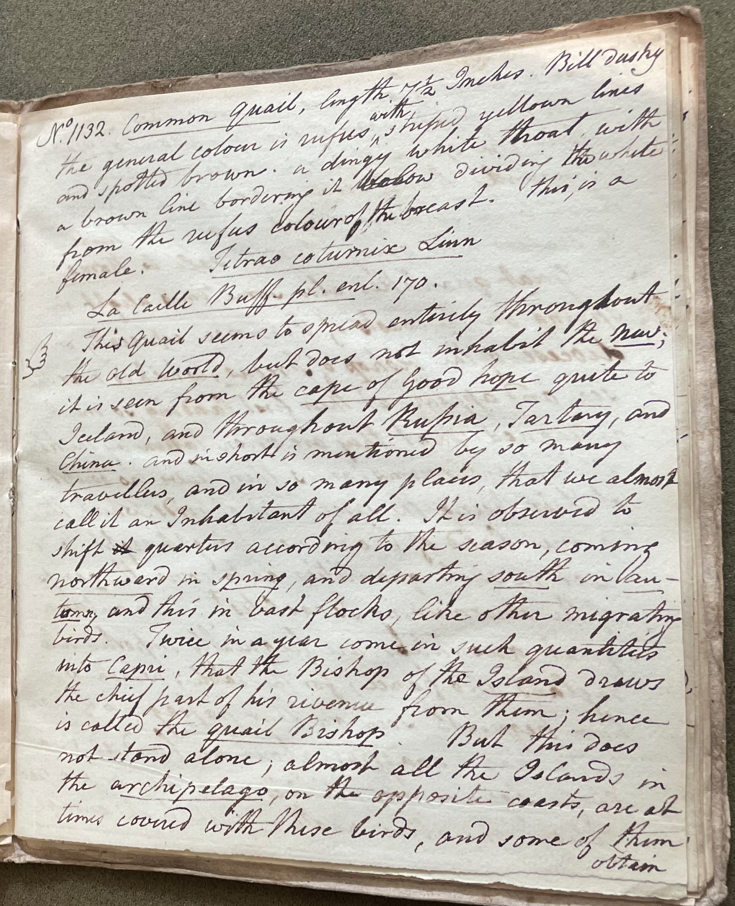 No 1132. Common Quail, length 7½ Inches. Bill dusky
the general colour is rufus, with striped yellown lines
and spotted brown. a dingy white throat, with
a brown line bordering it below dividing the white
from the rufus colour of the breast. This, is a
female. Titrao coturnix Linn
La Caille Buff pl. enl. 170.
This Quail seems to spread entirely throughout
the old World, but does not inhabit the new;
it is seen from the cape of Good hope quite to
Iceland, and throughout Russia, Tartary, and
China. and in short is mentioned by so many
travellers, and in so many places, that we almost
call it an Inhabitant of all. It is observed to
shift it quarters according to the season, coming
northward in spring, and departing south in Au-
tumn, and this in vast flocks, like other migrating
birds. Twice in a year come in such quantities
into Capri, that the Bishop of the Island draws
the chief part of his revenue from them; hence
is called the quail Bishop. But this does
not stand alone; almost all the Islands in
the archipelago, on the opposite coasts, are at
times covered with these birds, and some of them
obtain